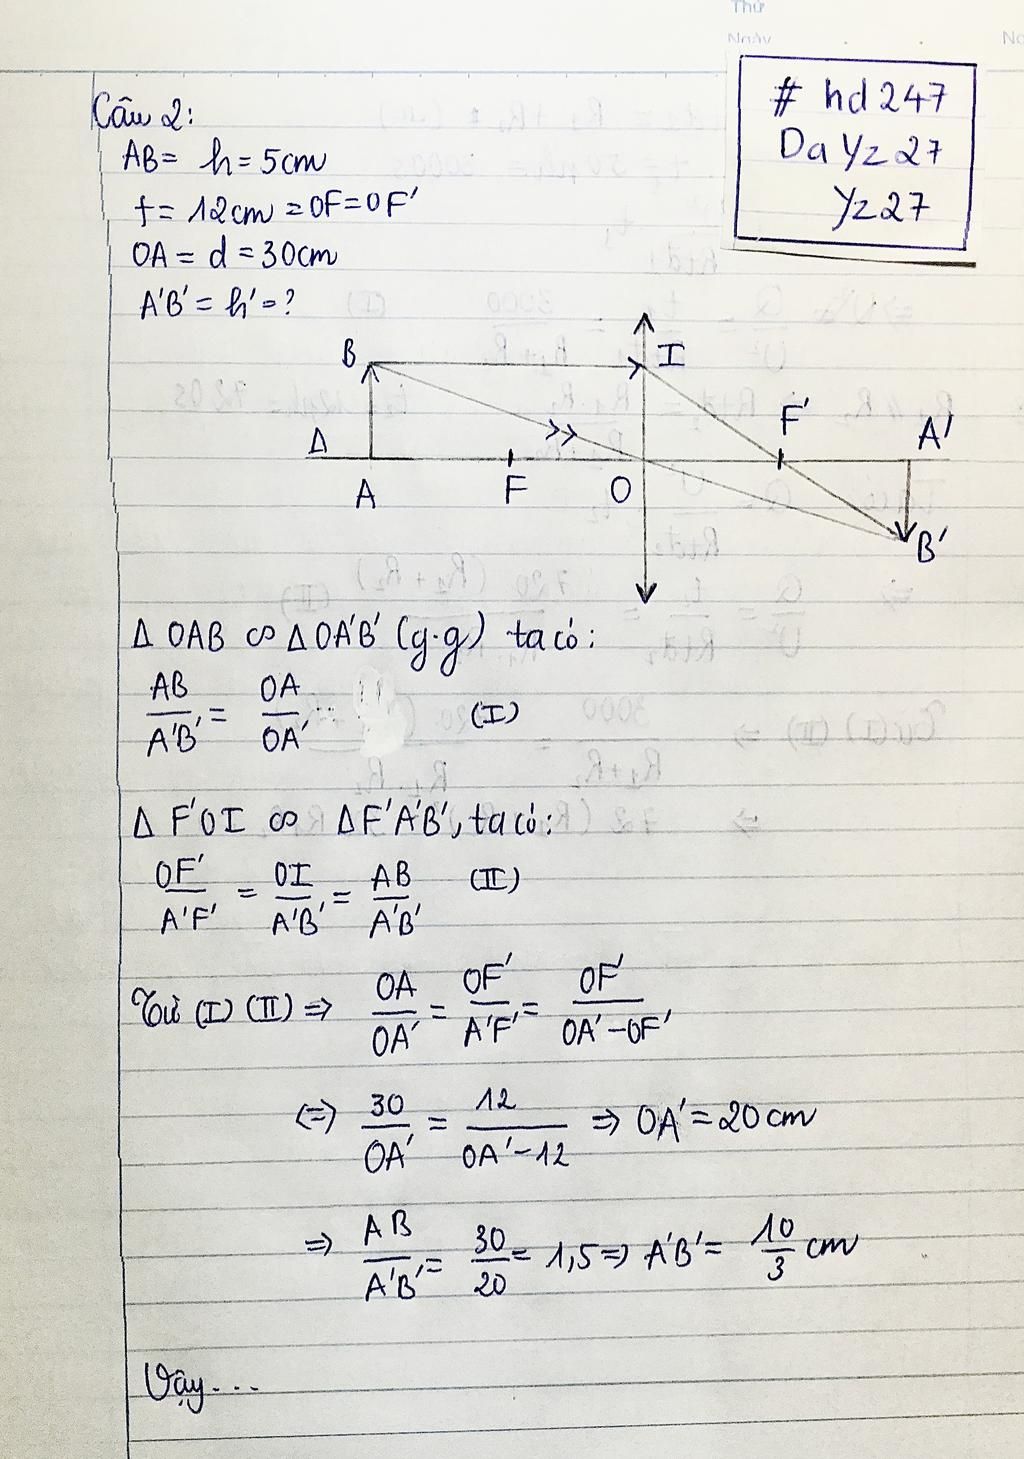 Thứ
Ngày
No
# hd 247
Da Yz 27
Yz 27
Câu 2:
AB = h = 5cm
f = 12cm = OF = OF'
OA = d = 30cm
A'B' = h' = ?
B
I
F'
A'
Δ
A
F
O
B'
Δ OAB ∽ Δ OA'B' (g.g) ta có:
AB/A'B' = OA/OA' (I)
Δ F'OI ∽ ΔF'A'B', ta có:
OF'/A'F' = OI/A'B' = AB/A'B' (II)
Từ (I) (II) => OA/OA' = OF'/A'F' = OF'/OA'-OF'
<=> 30/OA' = 12/OA'-12 => OA' = 20cm
=> AB/A'B' = 30/20 = 1,5 => A'B' = 10/3 cm
Vậy...